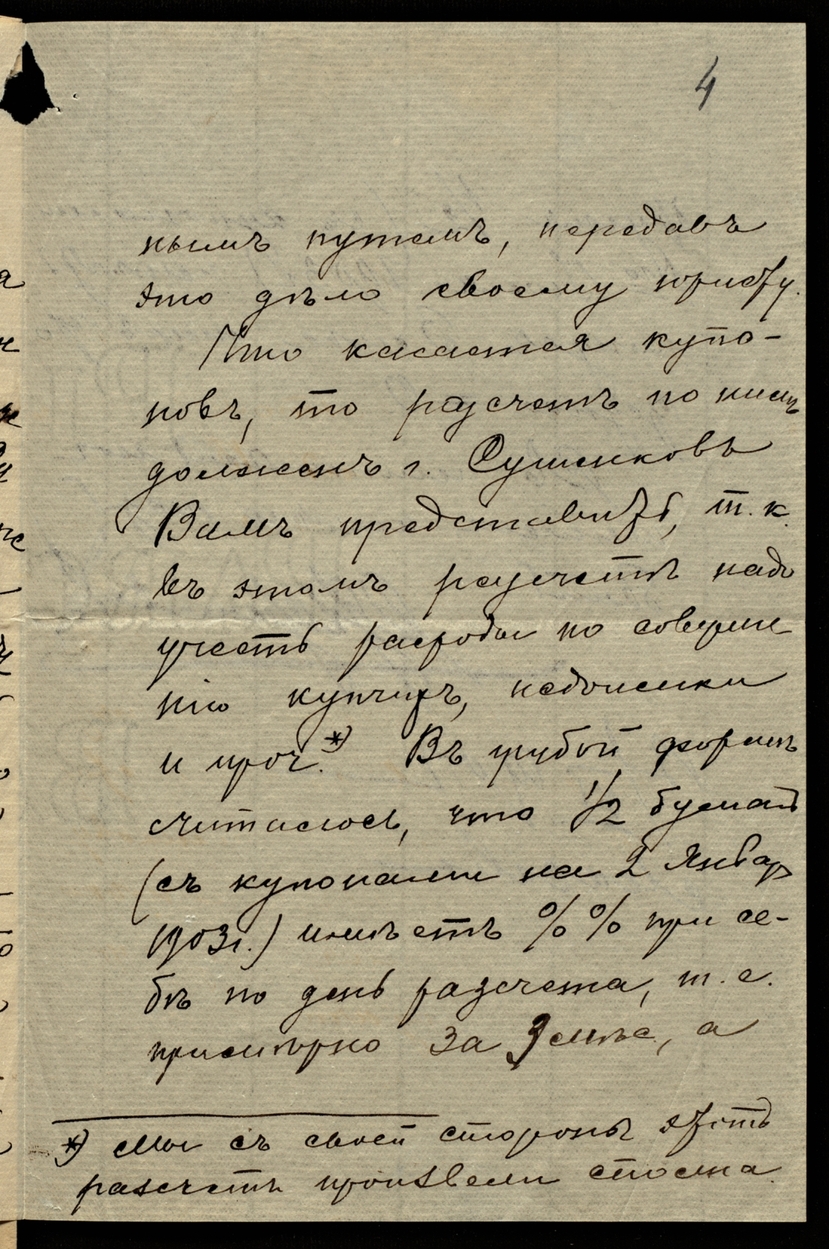 4
нымъ путемъ, передавъ
это дѣло своему юристу.
Что касается купо-
новъ, то расчетъ по нимъ
долженъ г. Сушенковъ
Вамъ представить, т.к.
въ этомъ расчетѣ надо
учесть расходы по соверше-
нію купчихъ, недоимки
и проч.*) Въ грубой формѣ
считалось, что 1/2 бумагъ
(съ купонами на 2 Январ
1903г.) имѣетъ %% при се-
бѣ по день разсчета, т.е.
примѣрно за 9 мѣс., а
*) Мы съ своей стороны этотъ
разсчетъ произвели